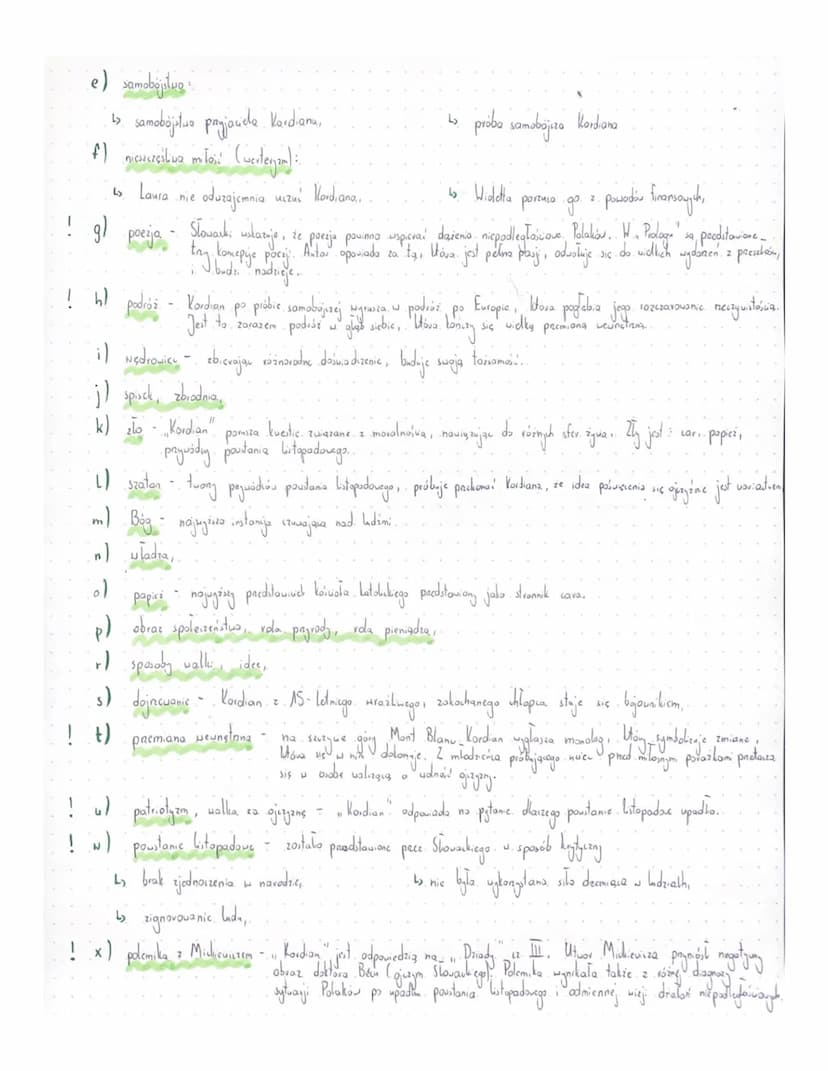 e) samobójstwo:
↳ samobójstwo przyjaciela Kordiana,
↳ próba samobójcza Kordiana
f) nieszczęśliwa miłość (werteryzm):
↳ Laura nie odwzajemnia uczuć Kordiana,
↳ Wioletta porzuca go z powodów finansowych,
! g) poezja - Słowacki wskazuje, że poezja powinna wspierać dążenia niepodległościowe Polaków. W „Prologu” są przedstawione
trzy koncepcje poezji. Autor opowiada za tą, która jest pełna pasji, odwołuje się do wielkich wydarzeń z przeszłości,
i budzi nadzieje.
! h) podróż - Kordian po próbie samobójczej wyrusza w podróż po Europie, która pogłębia jego rozczarowanie rzeczywistością.
Jest to zarazem podróż w głąb siebie, która kończy się wielką przemianą wewnętrzną.
i) wędrowiec - zbierając różnorodne doświadczenie, buduje swoją tożsamość.
j) spisek, zbrodnia,
k) zło - „Kordian” porusza kwestie związane z moralnością, nawiązując do różnych sfer życia. Zły jest: car, papież,
przywódcy powstania listopadowego.
l) szatan - tworzy przywódców powstania listopadowego, próbuje przekonać Kordiana, że idea poświęcenia się ojczyźnie jest wariactwem
m) Bóg - najwyższa instancja czuwająca nad ludźmi
n) władza,
o) papież - najwyższy przedstawiciel kościoła katolickiego przedstawiony jako stronnik cara.
p) obraz społeczeństwa, rola przyrody, rola pieniądza,
r) sposoby walki, idee,
s) dojrzewanie - Kordian z 15-letniego wrażliwego, zakochanego chłopca staje się bojownikiem,
! t) przemiana wewnętrzna - na szczycie góry Mont Blanc Kordian wygłasza monolog, który symbolizuje zmianę,
która się w nim dokonuje. Z młodzieńca próbującego uciec przed miłosnymi porażkami przeradza
się w osobę walczącą o wolność ojczyzny.
! u) patriotyzm, walka za ojczyznę - „Kordian” odpowiada na pytanie dlaczego powstanie listopadowe upadło.
! w) powstanie listopadowe - zostało przedstawione przez Słowackiego w sposób krytyczny
↳ brak zjednoczenia w narodzie,
↳ nie była wykorzystana siła drzemiąca w ludziach,
↳ zignorowanie ludu,
! x) polemika z Mickiewiczem - „Kordian” jest odpowiedzią na „Dziady” cz III. Utwór Mickiewicza przyniósł negatywny
obraz doktora Bécu (ojczym Słowackiego). Polemika wynikała także z różnej diagnozy
sytuacji Polaków po upadku powstania listopadowego i odmiennej wizji działań niepodległościowych.